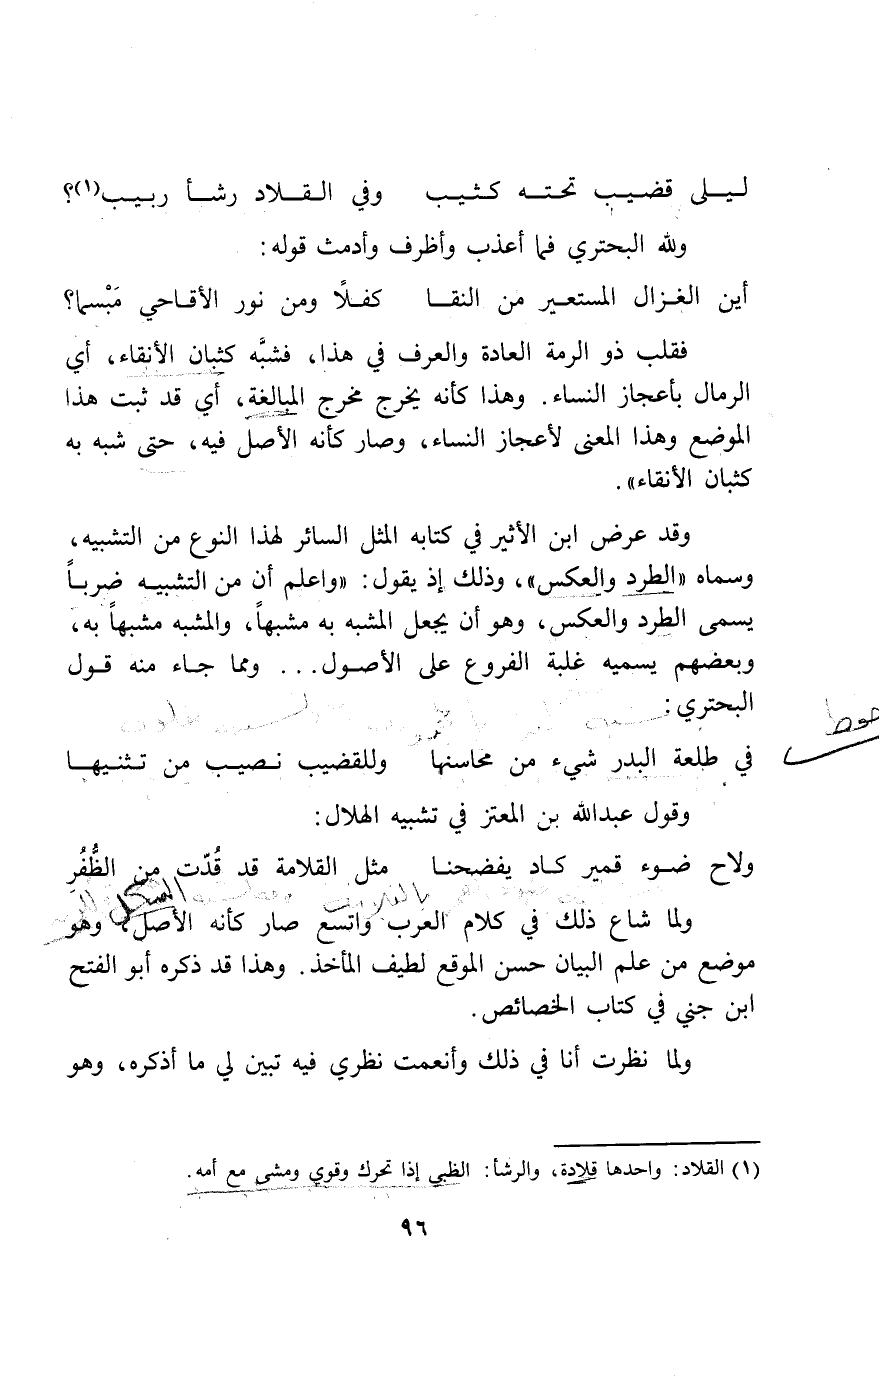 ليلى قضيب تحته كثيب وفي القلاد رشأ ربيب(١)؟
ولله البحتري فما أعذب وأظرف وأدمث قوله:
أين الغزال المستعير من النقا كفلًا ومن نور الأقاحي مَبْسما؟
فقلب ذو الرمة العادة والعرف في هذا، فشبَّه كثبان الأنقاء، أي
الرمال بأعجاز النساء. وهذا كأنه يخرج مخرج المبالغة، أي قد ثبت هذا
الموضع وهذا المعنى لأعجاز النساء، وصار كأنه الأصل فيه، حتى شبه به
كثبان الأنقاء».
وقد عرض ابن الأثير في كتابه المثل السائر لهذا النوع من التشبيه،
وسماه «الطرد والعكس»، وذلك إذ يقول: «واعلم أن من التشبيه ضرباً
يسمى الطرد والعكس، وهو أن يجعل المشبه به مشبهاً، والمشبه مشبهاً به،
وبعضهم يسميه غلبة الفروع على الأصول... ومما جاء منه قول
البحتري:
في طلعة البدر شيء من محاسنها وللقضيب نصيب من تثنيها
وقول عبدالله بن المعتز في تشبيه الهلال:
ولاح ضوء قمير كاد يفضحنا مثل القلامة قد قُدّت من الظُّفُرِ
ولما شاع ذلك في كلام العرب واتسع صار كأنه الأصل، وهو
موضع من علم البيان حسن الموقع لطيف المأخذ. وهذا قد ذكره أبو الفتح
ابن جني في كتاب الخصائص.
ولما نظرت أنا في ذلك وأنعمت نظري فيه تبين لي ما أذكره، وهو
(١) القلاد: واحدها قلادة، والرشأ: الظبي إذا تحرك وقوي ومشى مع أمه.
٩٦